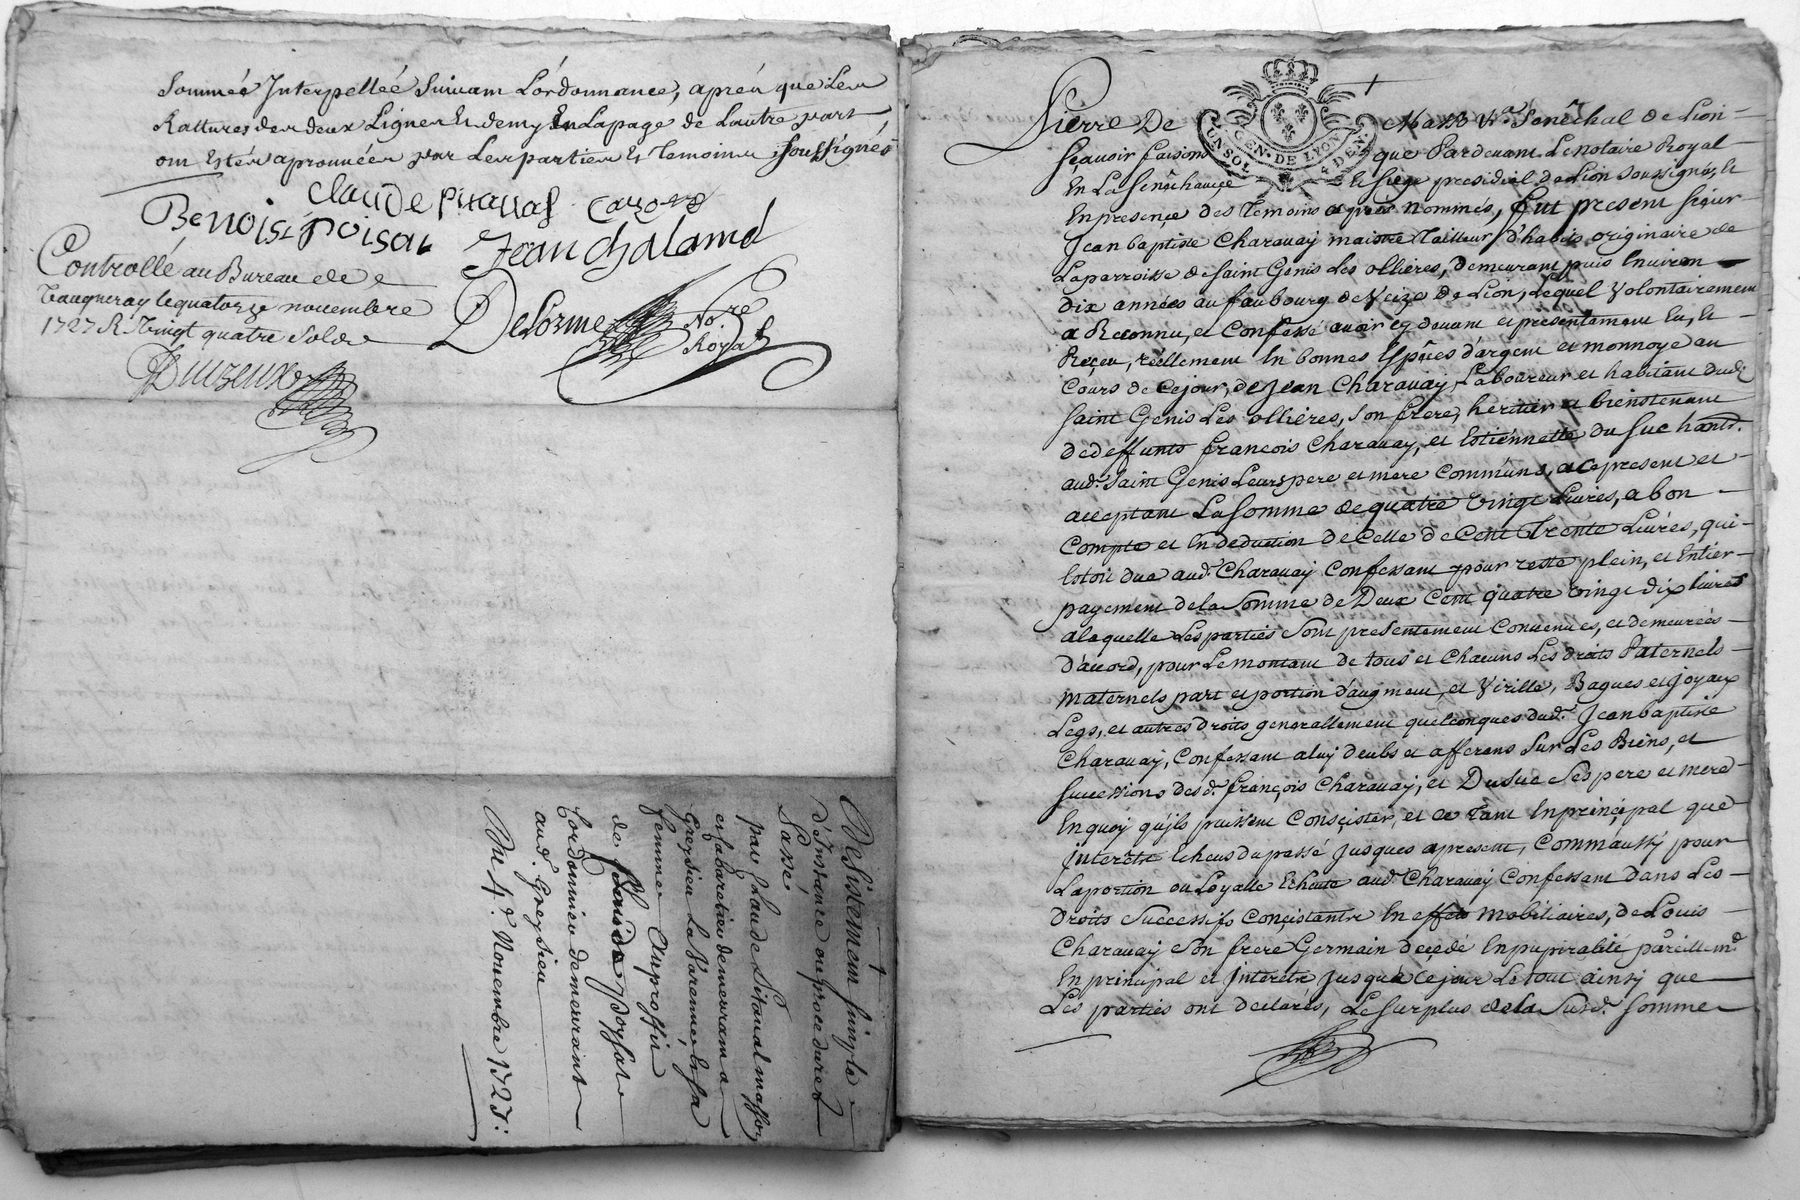 Sommés Interpellés Suivam L'ordonnance, aprés que Les
Rattures des deux Lignes Et demy En La page de L'autre part
om Estés aprouuées par Les parties Et Temoins soussignés
Claude
Benoist poisat Jean Chalamd
Controllé au Bureau de
Vaugneray le quatorze nouembre
1727 R vingt quatre Sols
Delorme No.re
Royal
Desistement Simple
d'Instance ou procedures
Passé
par Claude
et Cabaretier demeuram a
Greysieu La Varenne, Et sa
femme Au proffit
de
Cordonnier demeurant
aud. Greysieu
Du 4.e Nouembre 1727:
GEN. DE LYON
Pierre De Masso Sr. Senêchal de Lion
Sçauoir faisons que Pardeuant Le Notaire Royal
En La Senêchaucée Et Siége presidial de Lion soussigné, Et
En presençe des Temoins apres nommés, fut present Sieur
Jean baptiste Charauay maistre Tailleur d'habits originaire de
La parroisse de Saint Genis Les ollières, demeurant puis Enuiron
Dix années au faubourg de Veize de Lion, Lequel Volontairement
a Reconnu, et Confessé auoir cy deuant et presentement Eu, Et
Reçeu, réellement En bonnes Espêces d'argent et monnoye au
Cours de Cejour, de Jean Charauay Laboureur et habitant dud.
Saint Genis Les ollières, Son frere, heritier et bienstenant
de deffunts françois Charauay, et Estiennette du Suc hants.
aud. Saint Genis Leurs pere et mere Communs, a Ce present et
acceptant La Somme de quatre Vingt Liures, a bon
Compte et En deduction de Celle de Cent Trente Liures, qui
Estoit due aud. Charauay Confessant pour reste plein, et Entier
payement de la Somme de Deux Cent quatre vingt dix liures
a laquelle Les parties Sont presentement Conuenues, et demeurées
d'accord, pour Le montant de tous et Chacuns Les droits Paternels
maternels part et portion d'augment, et Virille, Bagues et Joyaux
Legs, et autres droits generallement quelconques dud. Jean baptiste
Charauay, Confessant a luy deubs et afferens Sur Les Biens, et
Successions desd. françois Charauay, et Dusuc Ses pere et mere
En quoy qu'ils puissent Consçister, et Ce Tant En prinçipal que
Interêts Echeus du passé Jusques apresent, Comm'aussy pour
La portion ou Loyalle Echeute aud. Charauay Confessant Dans Les
Droits Successifs Conçistants En effets mobiliaires, de Louis
Charauay Son frere Germain deçedé En pupiralité pareillemt.
En principal et Interêts Jusqua Ce jour Le tout ainsy que
Les parties ont declarés, Le Surplus de la Susd. Somme